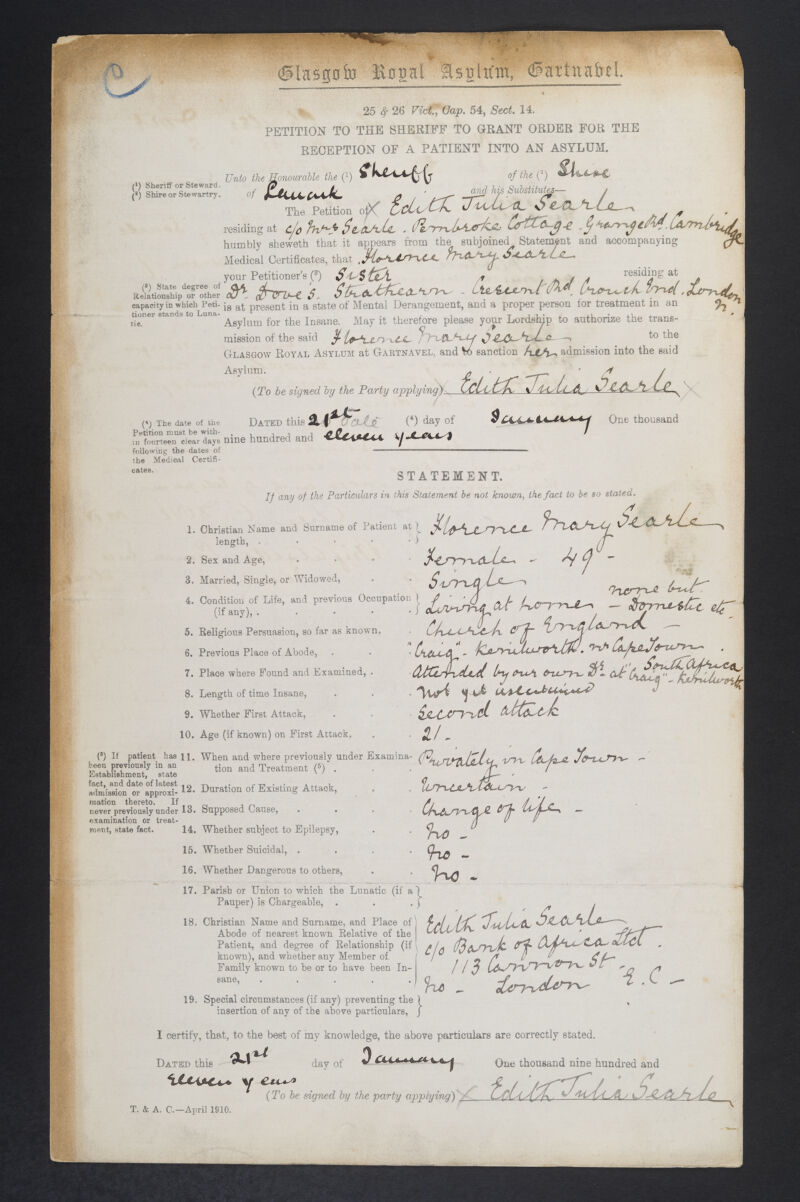 C
Glasgow Royal Asylum, Gartnavel.
25 & 26 Vict., Cap. 54, Sect. 14.
PETITION TO THE SHERIFF TO GRANT ORDER FOR THE
RECEPTION OF A PATIENT INTO AN ASYLUM.
(1) Sheriff or Steward.
(2) Shire or Stewartry.
Unto the Honourable the (1) Sheriff of the (2) Shire
of Lanark and his Substitutes—
The Petition of X Edith Julia Searle
residing at c/o Mrs Searle. Pembroke Cottage. Grange Rd. Cambridge
humbly sheweth that it appears from the subjoined Statement and accompanying
Medical Certificates, that Florence Mary Searle
your Petitioner's (3) Sister residing at
(3) State degree of Relationship or other capacity in which Petitioner stands to Lunatic.
Dr. Dove's. Strathearn - Crescent Rd. Crouch End. London N.
is at present in a state of Mental Derangement, and a proper person for treatment in an
Asylum for the Insane. May it therefore please your Lordship to authorize the trans-
mission of the said Florence Mary Searle to the
GLASGOW ROYAL ASYLUM at GARTNAVEL, and to sanction her admission into the said
Asylum.
(To be signed by the Party applying) Edith Julia Searle X
(4) The date of the Petition must be within fourteen clear days following the dates of the Medical Certificates.
DATED this 21st Date (4) day of January One thousand
nine hundred and eleven years
STATEMENT.
If any of the Particulars in this Statement be not known, the fact to be so stated.
1. Christian Name and Surname of Patient at length, . Florence Mary Searle
2. Sex and Age, Female - 49 -
3. Married, Single, or Widowed, Single
4. Condition of Life, and previous Occupation (if any), . Living at home - none but Domestic etc
5. Religious Persuasion, so far as known, Church of England -
6. Previous Place of Abode, "Craig" - Kenilworth. nr Cape Town. South Africa
7. Place where Found and Examined, Attended by our own Dr. at "Craig" - Kenilworth
8. Length of time Insane, Not yet ascertained
9. Whether First Attack, Second attack
10. Age (if known) on First Attack, 21 -
(5) If patient has been previously in an Establishment, state fact, and date of latest admission or approximation thereto. If never previously under examination or treatment, state fact.
11. When and where previously under Examination and Treatment (5) Privately in Cape Town -
12. Duration of Existing Attack, Uncertain -
13. Supposed Cause, Change of life -
14. Whether subject to Epilepsy, No -
15. Whether Suicidal, No -
16. Whether Dangerous to others, No -
17. Parish or Union to which the Lunatic (if a Pauper) is Chargeable,
18. Christian Name and Surname, and Place of Abode of nearest known Relative of the Patient, and degree of Relationship (if known), and whether any Member of Family known to be or to have been Insane,
Edith Julia Searle
c/o Bank of Africa Ltd.
113 Cannon St -
No - London E.C -
19. Special circumstances (if any) preventing the insertion of any of the above particulars,
I certify, that, to the best of my knowledge, the above particulars are correctly stated.
DATED this 21st day of January One thousand nine hundred and
eleven years
(To be signed by the party applying) X Edith Julia Searle
T. & A. C.—April 1910.